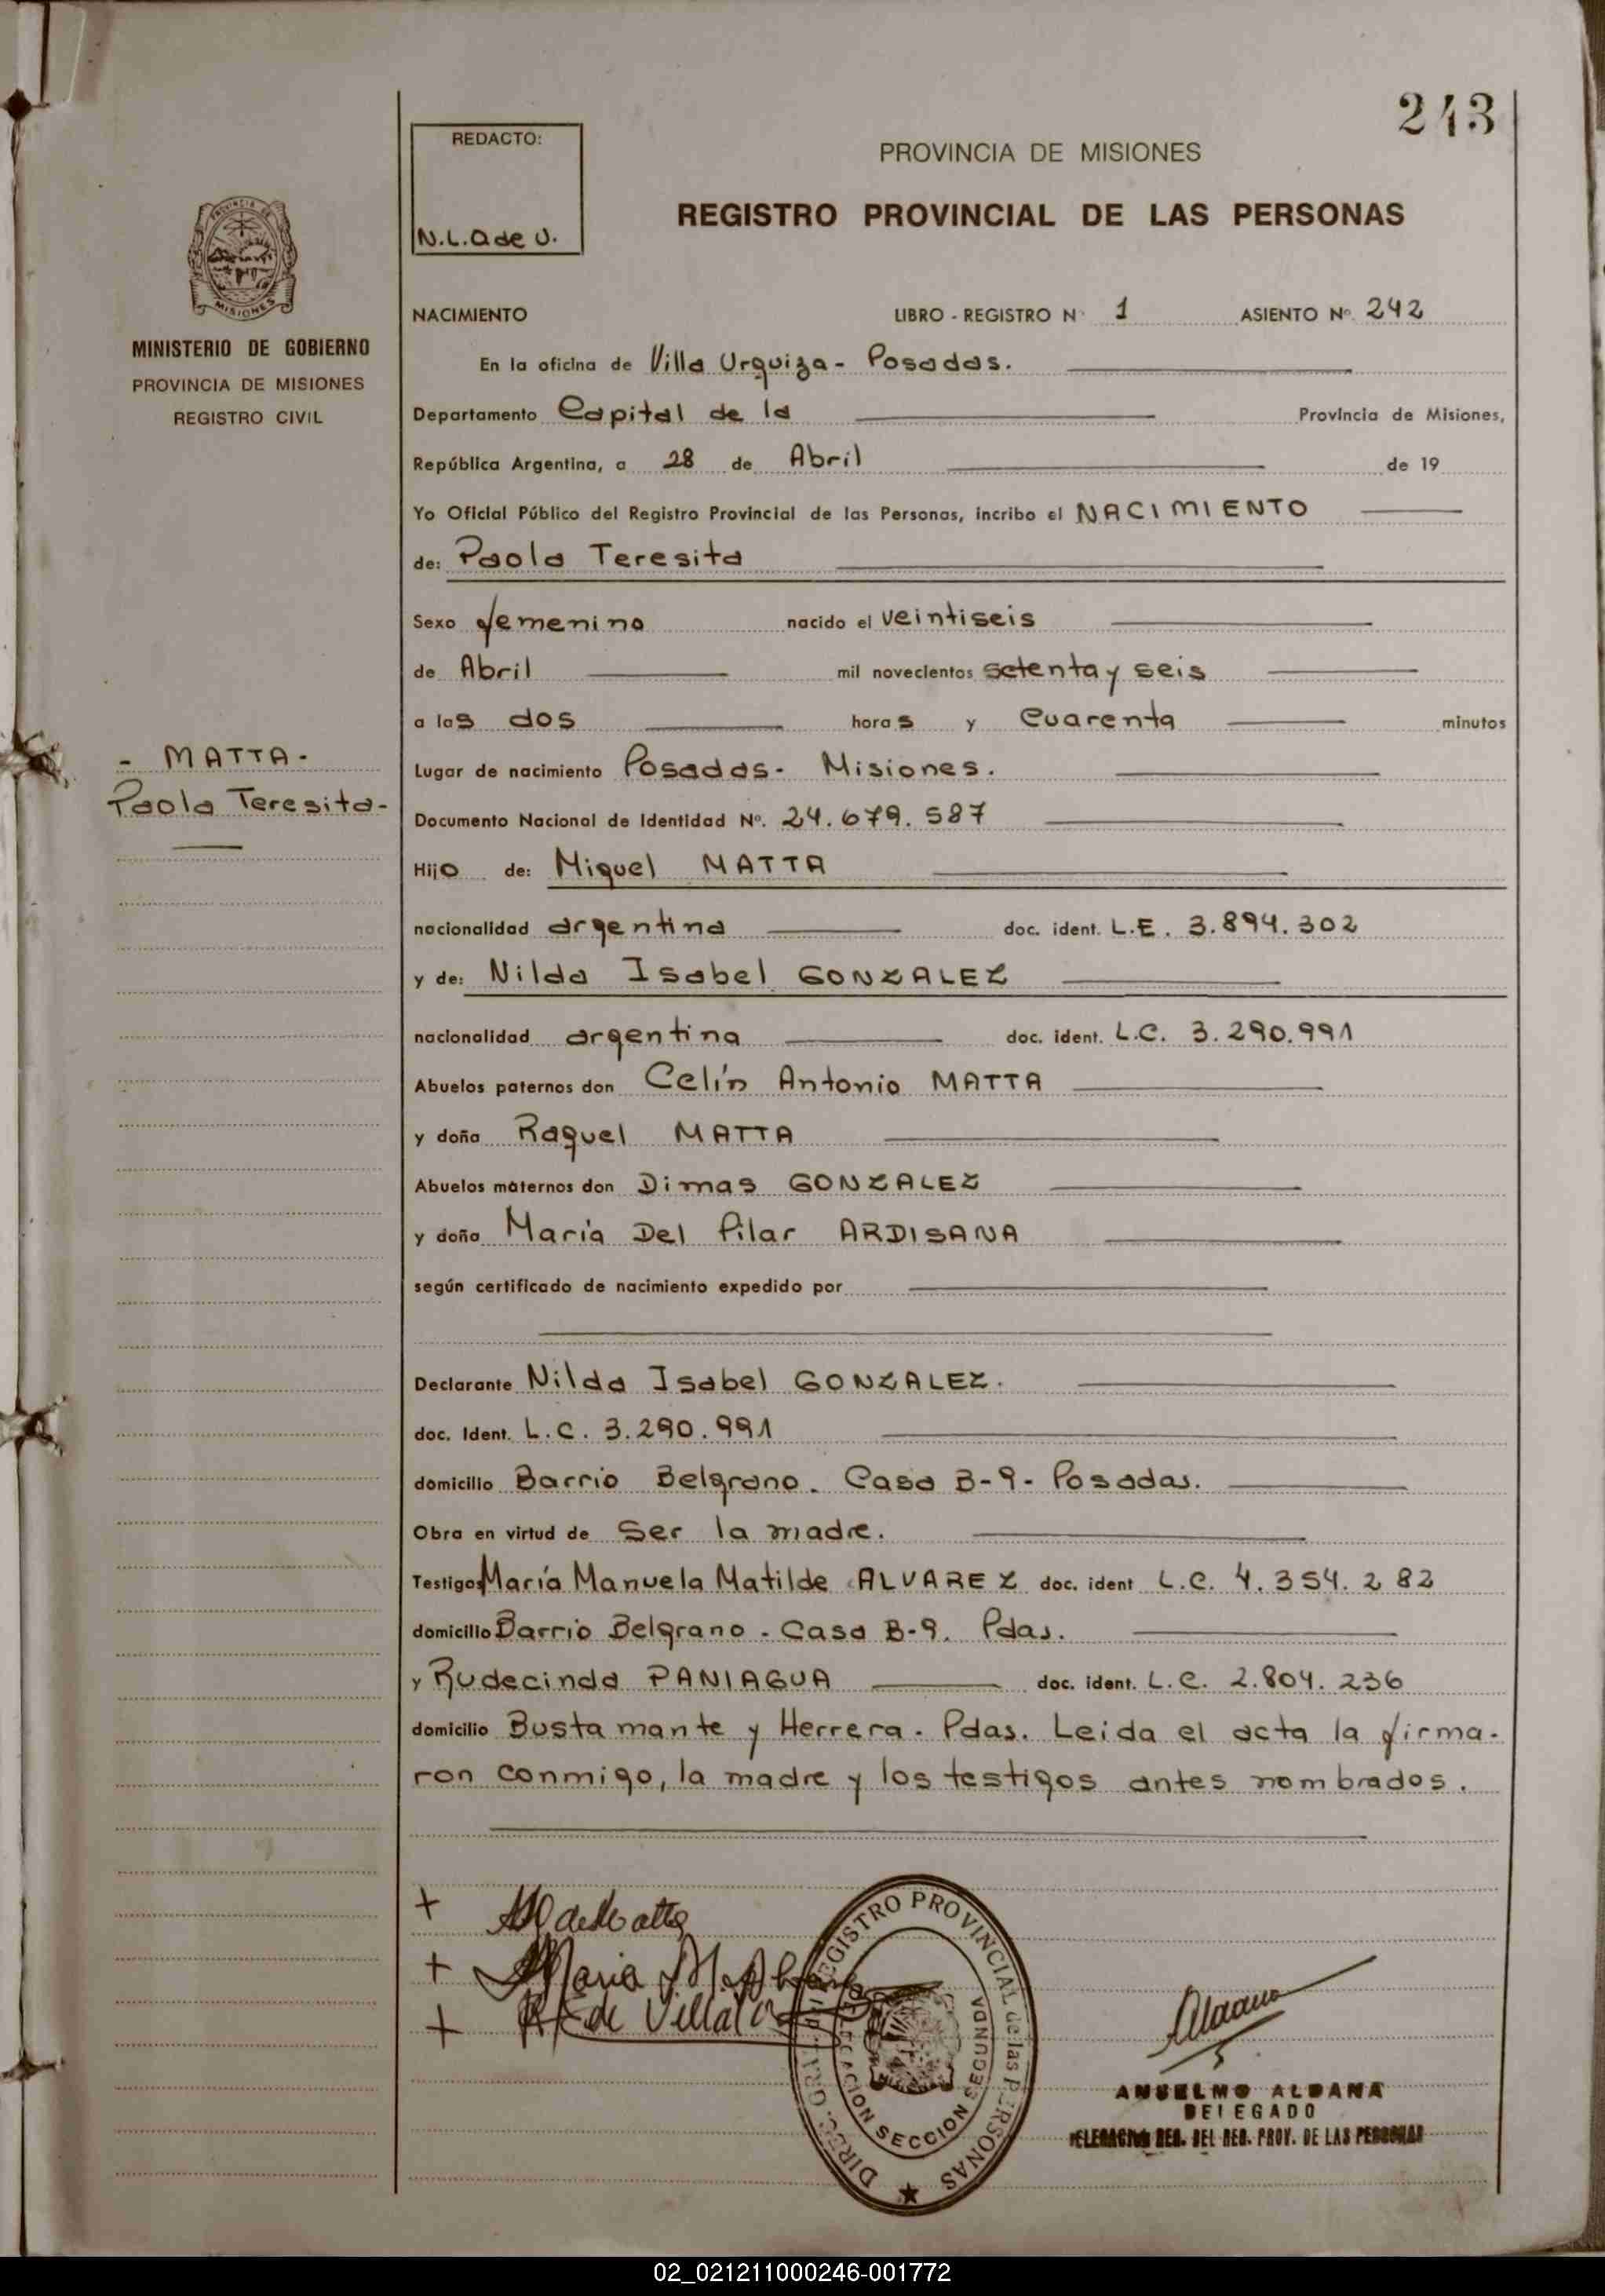 243
REDACTO:
N.L.Q de U.
PROVINCIA DE MISIONES
REGISTRO PROVINCIAL DE LAS PERSONAS
MISIONES
MINISTERIO DE GOBIERNO
PROVINCIA DE MISIONES
REGISTRO CIVIL
- MATTA -
Paola Teresita-
NACIMIENTO LIBRO - REGISTRO Nº 1 ASIENTO Nº. 242
En la oficina de Villa Urquiza - Posadas.
Departamento Capital de la Provincia de Misiones,
República Argentina, a 28 de Abril de 19
Yo Oficial Público del Registro Provincial de las Personas, incribo el NACIMIENTO
de: Paola Teresita
Sexo femenino nacido el veintiseis
de Abril mil novecientos setenta y seis
a las dos horas y Cuarenta minutos
Lugar de nacimiento Posadas - Misiones.
Documento Nacional de Identidad Nº. 24.679.587
Hijo de: Miguel MATTA
nacionalidad argentina doc. ident. L.E. 3.894.302
y de: Nilda Isabel GONZALEZ
nacionalidad argentina doc. ident. L.C. 3.290.991
Abuelos paternos don Celín Antonio MATTA
y doña Raquel MATTA
Abuelos maternos don Dimas GONZALEZ
y doña María Del Pilar ARDISANA
según certificado de nacimiento expedido por
Declarante Nilda Isabel GONZALEZ.
doc. Ident. L.C. 3.290.991
domicilio Barrio Belgrano. Casa B-9- Posadas.
Obra en virtud de Ser la madre.
Testigos María Manuela Matilde ALVAREZ doc. ident L.C. 4.354.282
domicilio Barrio Belgrano - Casa B-9. Pdas.
y Rudecinda PANIAGUA doc. ident. L.C. 2.804.236
domicilio Bustamante y Herrera. Pdas. Leida el acta la firma-
ron conmigo, la madre y los testigos antes nombrados.
de Matta
Maria M. A
de Villal
DIREC. GRAL. DEL REGISTRO PROVINCIAL de las PERSONAS
SECCION SEGUNDA
ANSELMO ALDANA
DELEGADO
DELEGACION REG. DEL REG. PROV. DE LAS PERSONAS
02_021211000246-001772